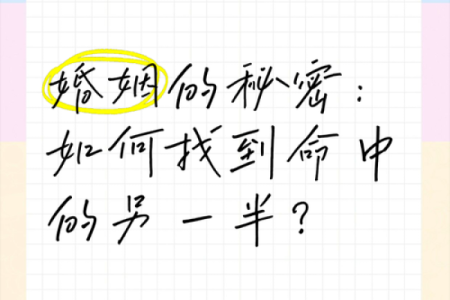 婚姻的秘密：
如何找到命中
的另一半？